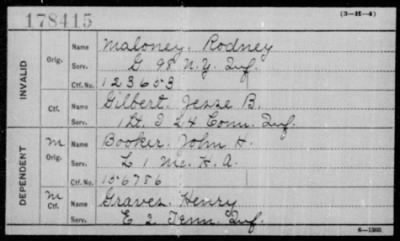 178415
(3—H—4)
INVALID
Orig. Name Maloney, Rodney
Serv. G 98 N.Y. Inf.
Ctf. No. 123653
Ctf. Name Gilbert, Jesse B.
Serv. 1 Lt. I 24 Conn. Inf.
DEPENDENT
M Orig. Name Booker, John H.
Serv. L 1 Me. H. A.
Ctf. No. 156786
M Ctf. Name Graves, Henry
Serv. E 2 Tenn. Inf.